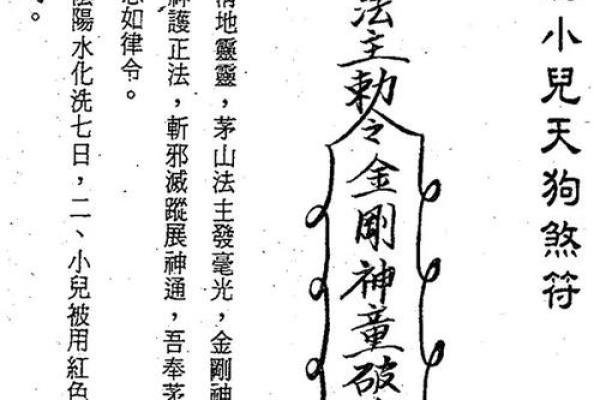 小兒天狗煞符
法主勅令金剛神童破
清地靈靈，茅山法主發毫光，金剛神
護正法，斬邪滅蹤展神通，吾奉茅
如律令。
陰陽水化洗七日，二、小兒被用紅色
。